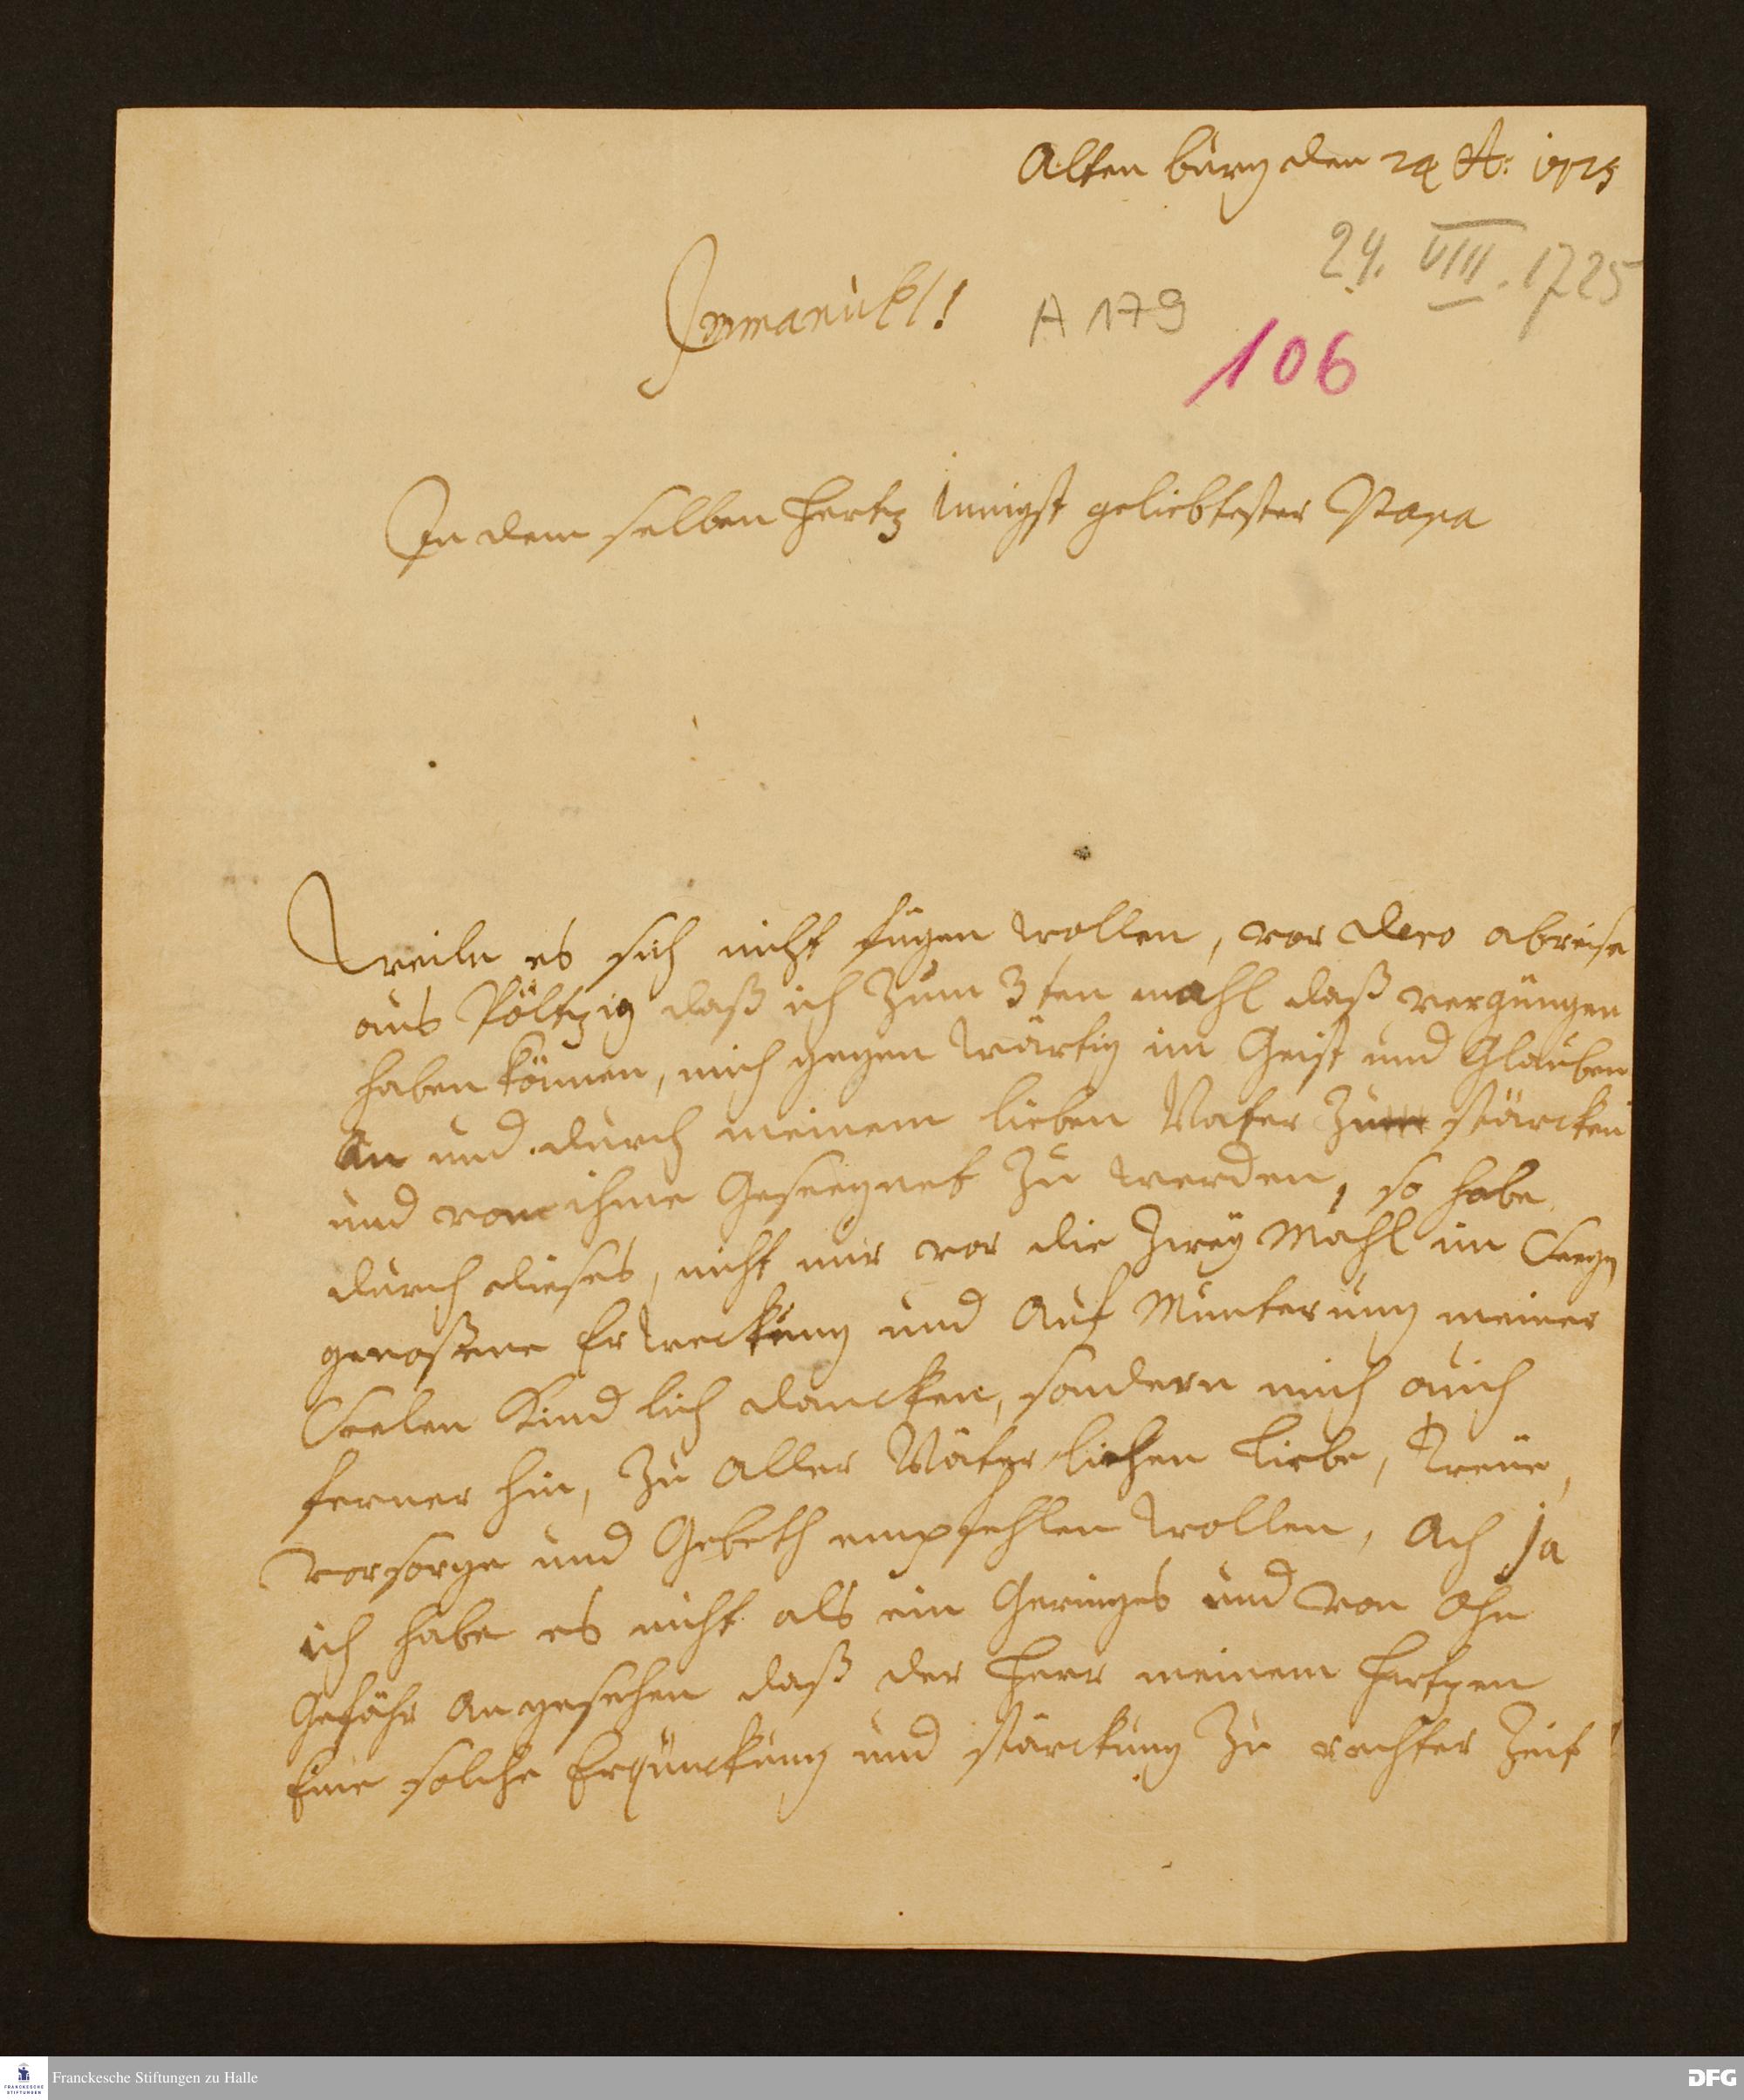 Alten burg den 24 A: 1725
24. VIII. 1725
Immanuel!
A 179
106
In dem selben Hertz Innigst geliebtester Papa
Weiln es sich nicht fügen wollen, vor Dero abreise
aus Pöltzig daß ich zum 3ten mahl daß vergüngen
haben können, mich gegen wärtig im Geist und Glauben
An und durch meinem lieben Vater zu stärcken
und von ihme Geseegnet zu werden, so habe
durch dieses, nicht nur vor die Zwey Mahl im Seegn
genoßene Er weckung und Auf Munterung meiner
Seelen Kind lich dancken, sondern mich auch
ferner hin, zu aller Väter lichen Liebe, Treue,
vorsorge und Gebeth empfehlen wollen, Ach Ja
ich habe es nicht als ein Geringes und von Ohn
Gefähr Angesehen daß der Herr meinem Hertzen
Eine solche Erqüuckung und stärckung zu rechter Zeit
Franckesche Stiftungen zu Halle
FRANCKESCHE STIFTUNGEN
DFG